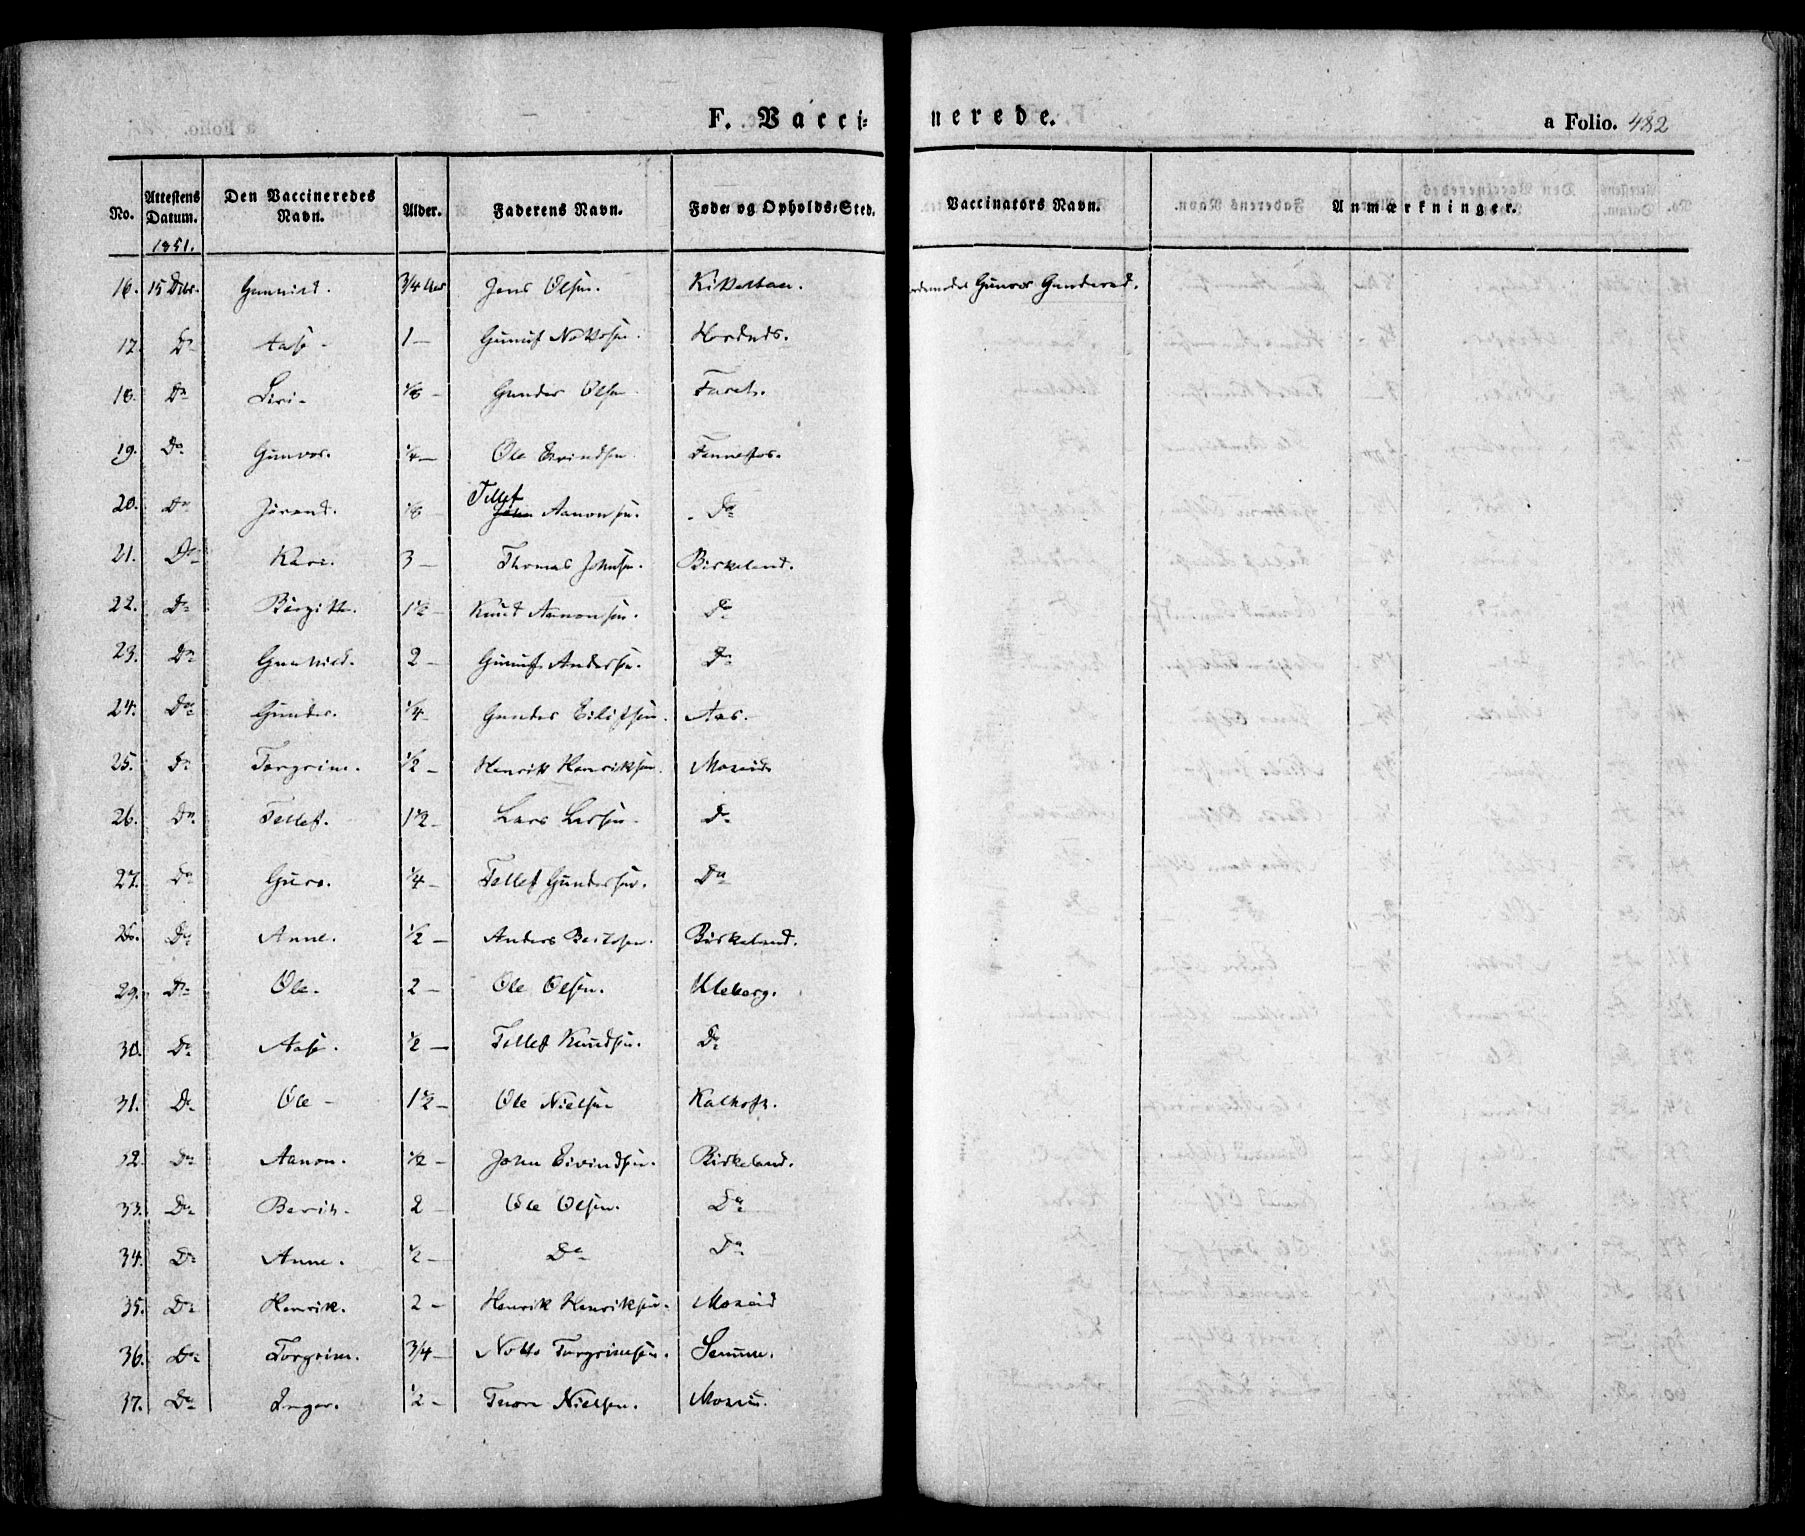 F. Vacci-nerede.
a Folio. 482
No. Attestens Datum. Den Vaccineredes Navn. Alder. Faderens Navn. Føde- og Opholds-Sted. Vaccinators Navn. Anmærkninger.
1851.
16. 15 Dcbr. Gunnild. 3/4 Aar Jens Olsen. Gunvor
17. Do Aase 1 —
18. Do Siri 1/2 — Gunder Olsen
19. Do Gunvor. 1/4 — Ole Eivindsen
20. Do Jorand. 1/2 — Tellef John Aanonsen. Do
21. Do Kari. 3 — Thomas Johnsen. Birkeland.
22. Do Birgitte. 1 1/2 — Knud Aanonsen. Do
23. Do Gunnild. 2 — Gunuf Andersen. Do
24. Do Gunder. 1/4 — Gunder Eilifsen. Aas.
25. Do Torgrim. 1/2 — Henrik Henriksen. Moseid
26. Do Tellef. 1 1/2 — Lars Larsen Do
27. Do Guro. 1/4 — Tellef Gundersen. Do
28. Do Anne. 1/2 — Anders Birkeland.
29. Do Ole. 2 — Ole Olsen. Uleberg.
30. Do Aase. 1/2 — Tellef Knudsen. Do
31. Do Ole 1 1/2 — Ole Nielsen
32. Do Aanon. 1/2 — John Eivindsen. Birkeland.
33. Do Berith. 2 — Ole Olsen. Do
34. Do Anne. 1/2 — Do Do
35. Do Henrik. 2 — Henrik Henriksen. Moseid
36. Do Torgrim. 3/4 — Notto Torgrimsen.
37. Do Inger. 1/2 — Thore Nielsen. Moseid.